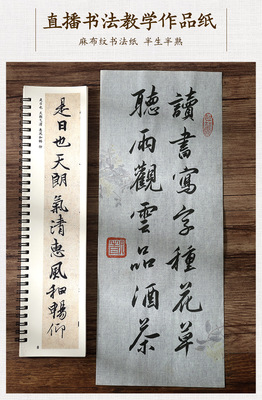 直播书法教学作品纸
麻布纹书法纸 半生半熟
是日也天朗氣清惠風和暢仰
讀書寫字種花草
聽雨觀雲品酒茶